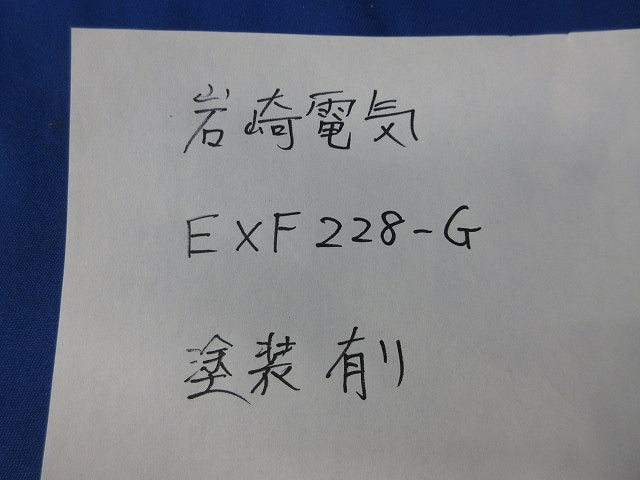 岩崎電気
EXF228-G
塗装有り